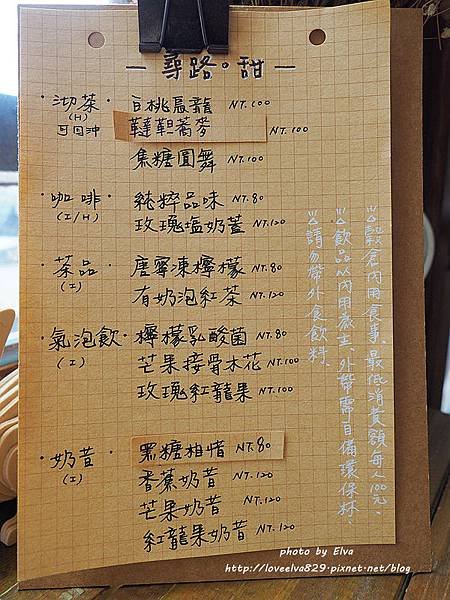 — 尋路。甜 —
·沏茶· 白桃烏龍 NT.100
(H) 可回沖 韃靼蕎麥 NT.100
焦糖圓舞 NT.100
·咖啡· 純粹品味 NT.80
(I/H) 玫瑰塩奶蓋 NT.120
·茶品· 唐寧凍檸檬 NT.80
(I) 有奶泡紅茶 NT.120
·氣泡飲· 檸檬乳酸菌 NT.80
(I) 芒果接骨木花 NT.100
玫瑰紅龍果 NT.100
·奶昔· 黑糖相惜 NT.80
(I) 香蕉奶昔 NT.120
芒果奶昔 NT.120
紅龍果奶昔 NT.120
穀倉內用食事、最低消費額每人100元、
飲品以內用為主、外帶需自備環保杯、
請勿帶外食飲料、
photo by Elva
http://loveelva829.pixnet.net/blog